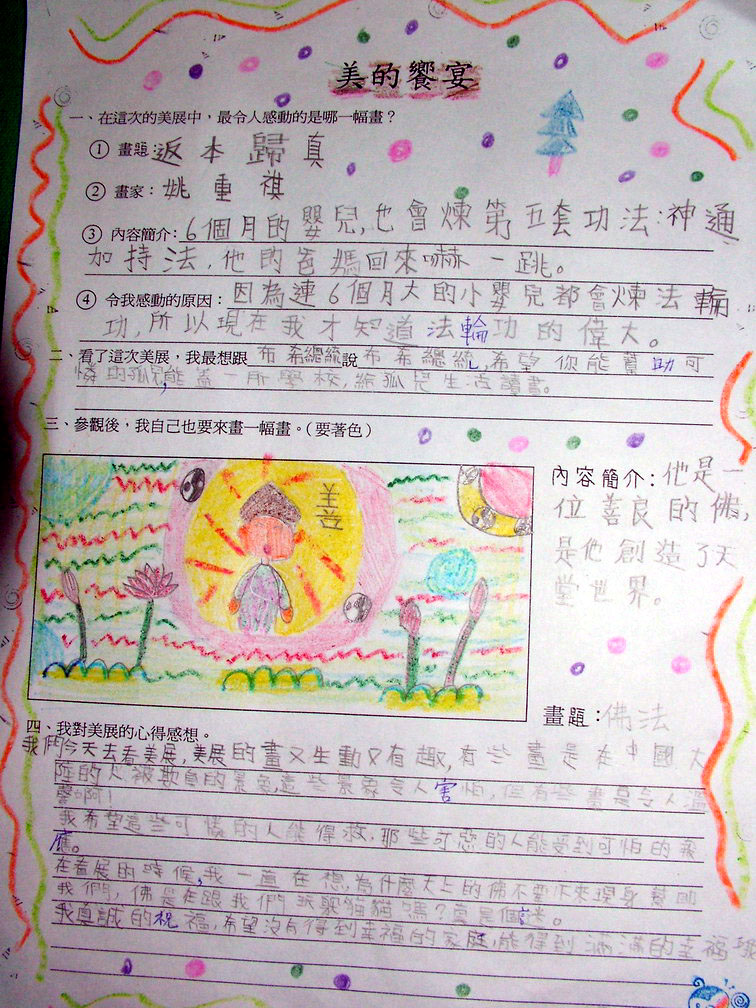 美的饗宴
一、在這次的美展中，最令人感動的是哪一幅畫？
① 畫題：返本歸真
② 畫家：姚重祺
③ 內容簡介：6個月的嬰兒，也會煉第五套功法：神通
加持法，他的爸媽回來嚇一跳。
④ 令我感動的原因：因為連6個月大的小嬰兒都會煉法輪
功，所以現在我才知道法輪功的偉大。
二、看了這次美展，我最想跟布希總統說布希總統，希望你能幫助可
憐的孤兒，能蓋一所學校，給孤兒生活讀書。
三、參觀後，我自己也要來畫一幅畫。（要著色）
善
內容簡介：他是一
位善良的佛，
是他創造了天
堂世界。
畫題：佛法
四、我對美展的心得感想。
我們今天去看美展，美展的畫又生動又有趣，有些畫是在中國大
陸的人被欺負的景象，這些景象令人害怕，但有些畫是令人溫
馨啊！
我希望這些可憐的人能得救，那些可惡的人能受到可怕的報
應。
在看展的時候，我一直在想，為什麼天上的佛不要下來現身幫助
我們，佛是在跟我們玩躲貓貓嗎？真是個謎。
我真誠的祝福，希望沒有得到幸福的家庭，能得到滿滿的幸福